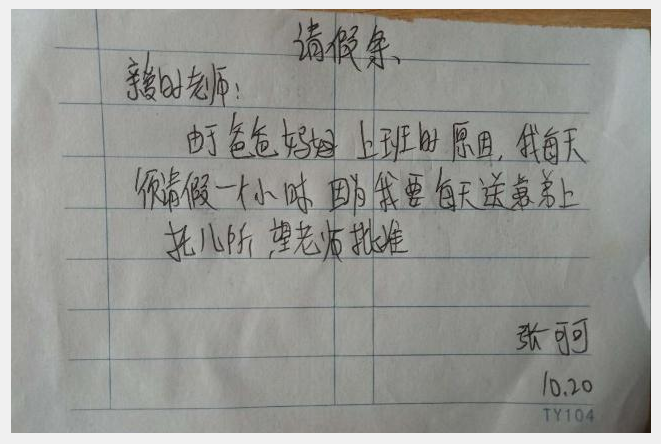 请假条
亲爱的老师：
由于爸爸妈妈上班的原因，我每天
须请假一个小时 因为我要每天送弟弟上
托儿所，望老师批准
张可可
10.20
TY104